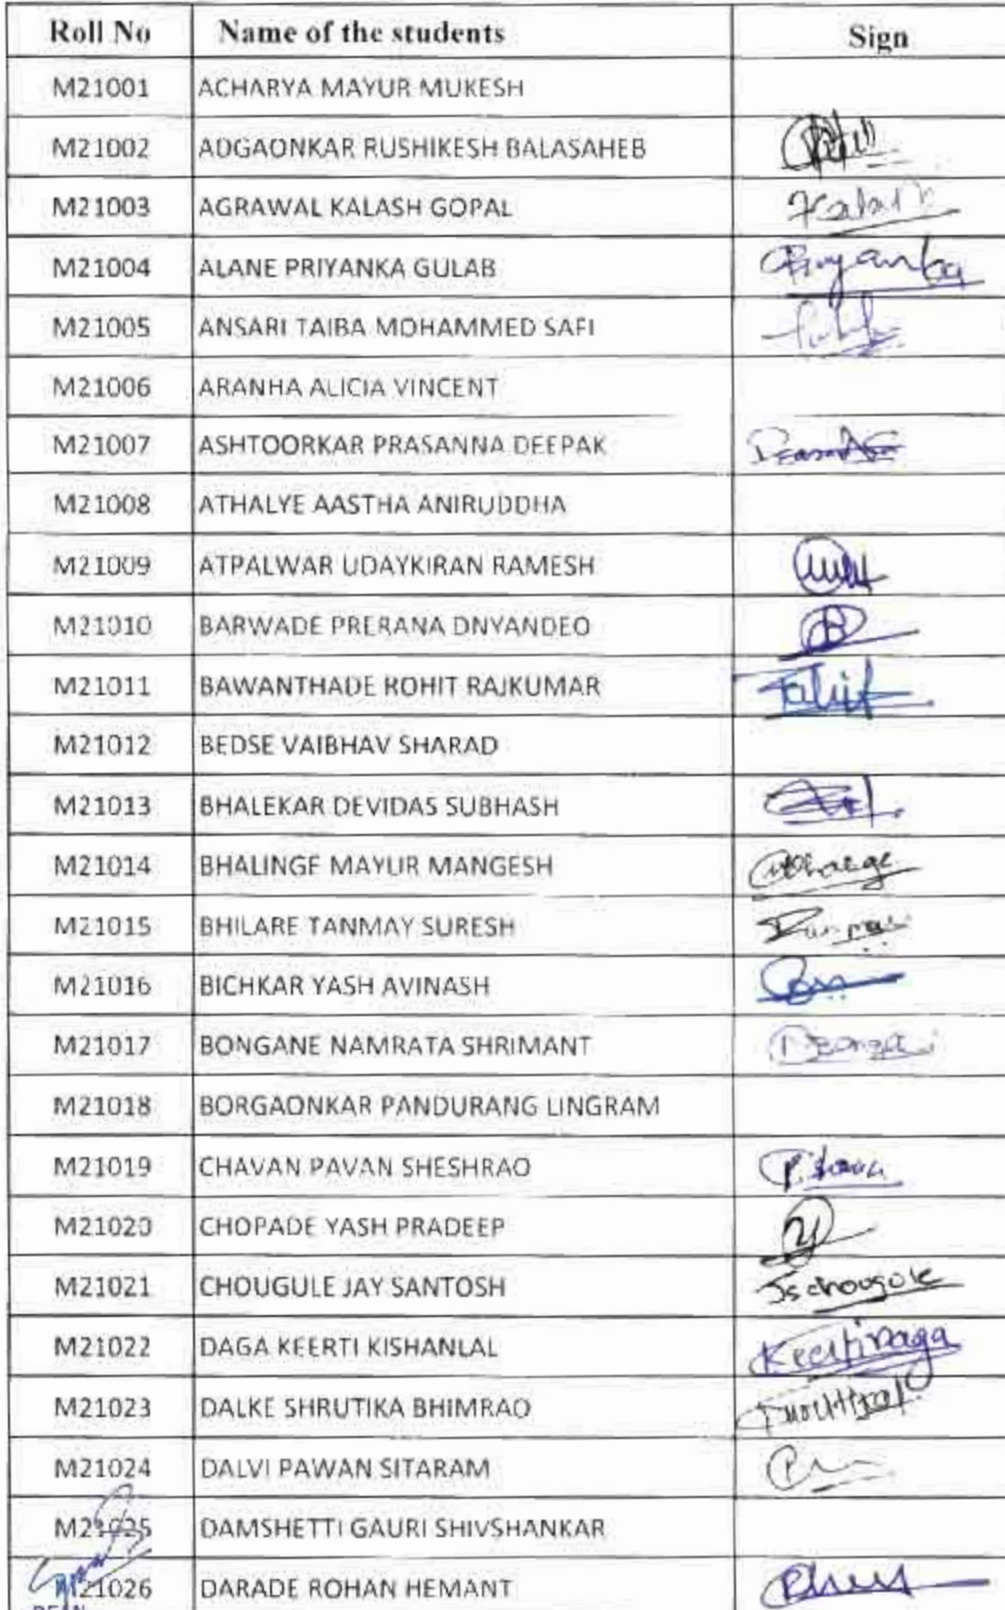 Roll No Name of the students Sign
M21001 ACHARYA MAYUR MUKESH
M21002 ADGAONKAR RUSHIKESH BALASAHEB
M21003 AGRAWAL KALASH GOPAL Kalash
M21004 ALANE PRIYANKA GULAB Priyanka
M21005 ANSARI TAIBA MOHAMMED SAFI
M21006 ARANHA ALICIA VINCENT
M21007 ASHTOORKAR PRASANNA DEEPAK
M21008 ATHALYE AASTHA ANIRUDDHA
M21009 ATPALWAR UDAYKIRAN RAMESH
M21010 BARWADE PRERANA DNYANDEO
M21011 BAWANTHADE ROHIT RAJKUMAR
M21012 BEDSE VAIBHAV SHARAD
M21013 BHALEKAR DEVIDAS SUBHASH
M21014 BHALINGE MAYUR MANGESH
M21015 BHILARE TANMAY SURESH
M21016 BICHKAR YASH AVINASH
M21017 BONGANE NAMRATA SHRIMANT
M21018 BORGAONKAR PANDURANG LINGRAM
M21019 CHAVAN PAVAN SHESHRAO
M21020 CHOPADE YASH PRADEEP
M21021 CHOUGULE JAY SANTOSH Jschougule
M21022 DAGA KEERTI KISHANLAL Keertidaga
M21023 DALKE SHRUTIKA BHIMRAO
M21024 DALVI PAWAN SITARAM
M21025 DAMSHETTI GAURI SHIVSHANKAR
M21026 DARADE ROHAN HEMANT